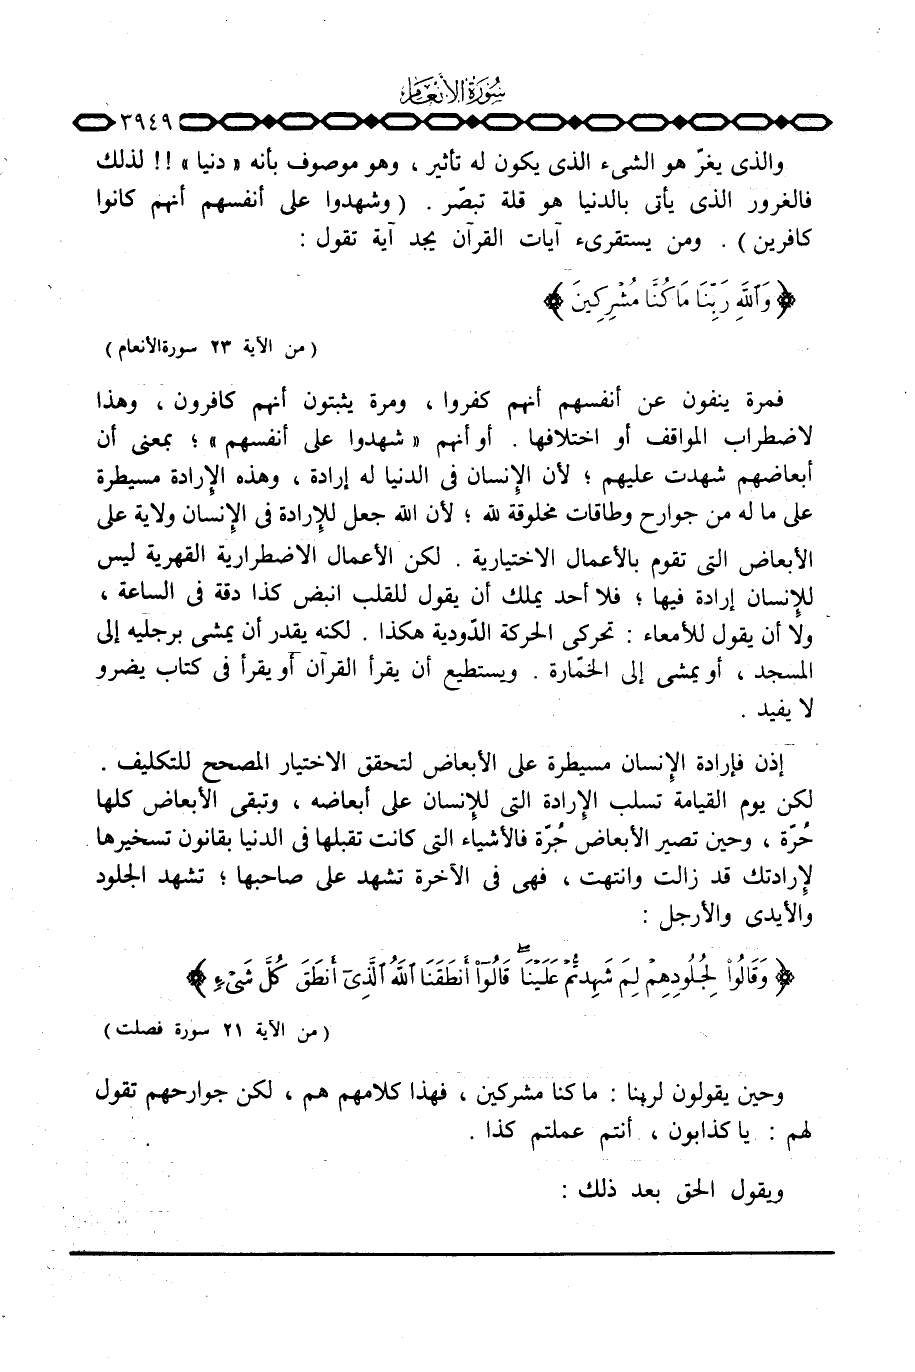 سُورَةُ الأَنْعَامِ
٣٩٤٩
والذى يغرّ هو الشىء الذى يكون له تأثير ، وهو موصوف بأنه « دنيا » !! لذلك
فالغرور الذى يأتى بالدنيا هو قلة تبصّر . ( وشهدوا على أنفسهم أنهم كانوا
كافرين ) . ومن يستقرىء آيات القرآن يجد آية تقول :
﴿ وَٱللَّهِ رَبِّنَا مَا كُنَّا مُشْرِكِينَ ﴾
( من الآية ٢٣ سورة الأنعام )
فمرة ينفون عن أنفسهم أنهم كفروا ، ومرة يثبتون أنهم كافرون ، وهذا
لاضطراب المواقف أو اختلافها . أو أنهم « شهدوا على أنفسهم » ؛ بمعنى أن
أبعاضهم شهدت عليهم ؛ لأن الإنسان فى الدنيا له إرادة ، وهذه الإرادة مسيطرة
على ما له من جوارح وطاقات مخلوقة لله ؛ لأن الله جعل للإرادة فى الإنسان ولاية على
الأبعاض التى تقوم بالأعمال الاختيارية . لكن الأعمال الاضطرارية القهرية ليس
للإنسان إرادة فيها ؛ فلا أحد يملك أن يقول للقلب انبض كذا دقة فى الساعة ،
ولا أن يقول للأمعاء : تحركى الحركة الدّودية هكذا . لكنه يقدر أن يمشى برجليه إلى
المسجد ، أو يمشى إلى الخمّارة . ويستطيع أن يقرأ القرآن أو يقرأ فى كتاب يضر و
لا يفيد .
إذن فإرادة الإنسان مسيطرة على الأبعاض لتحقق الاختيار المصحح للتكليف .
لكن يوم القيامة تسلب الإرادة التى للإنسان على أبعاضه ، وتبقى الأبعاض كلها
حُرّة ، وحين تصير الأبعاض حُرّة فالأشياء التى كانت تقبلها فى الدنيا بقانون تسخيرها
لإرادتك قد زالت وانتهت ، فهى فى الآخرة تشهد على صاحبها ؛ تشهد الجلود
والأيدى والأرجل :
﴿ وَقَالُوا۟ لِجُلُودِهِمْ لِمَ شَهِدتُّمْ عَلَيْنَا ۖ قَالُوٓا۟ أَنطَقَنَا ٱللَّهُ ٱلَّذِىٓ أَنطَقَ كُلَّ شَىْءٍ ﴾
( من الآية ٢١ سورة فصلت )
وحين يقولون لربنا : ما كنا مشركين ، فهذا كلامهم هم ، لكن جوارحهم تقول
لهم : يا كذابون ، أنتم عملتم كذا .
ويقول الحق بعد ذلك :